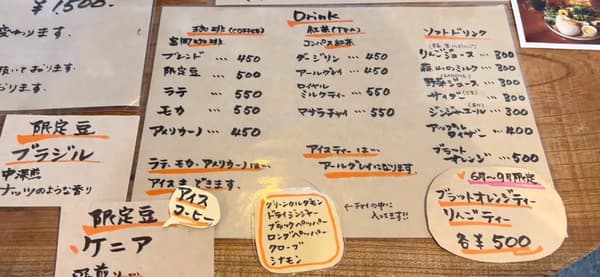 ¥1500.
変わります.
頂いております.
おります.
Drink
珈琲(COFFEE)
富岡珈琲
ブレンド … 450
限定豆 … 500
ラテ … 550
モカ … 550
アメリカーノ … 450
ラテ、モカ、アメリカーノは…
アイスもできます.
アイス
コーヒー
紅茶(TEA)
コンパス紅茶
ダージリン … 450
アールグレイ … 450
ロイヤル
ミルクティー … 550
マサラチャイ … 550
アイスティーは…
アールグレイになります.
グリーンカルダモン
ドライジンジャー
ブラックペッパー
ロングペッパー
クローブ
シナモン
←チャイの中に
入ってます!!
ソフトドリンク
りんごジュース … 300
ミルク … 300
野菜ジュース … 300
サイダー … 300
ジンジャエール … 300
アップル
タイザー … 400
ブラッド
オレンジ … 500
6月〜9月限定
ブラッドオレンジティー
りんごティー
各¥500
限定豆
ブラジル
中深煎
ナッツのような香り
限定豆
ケニア